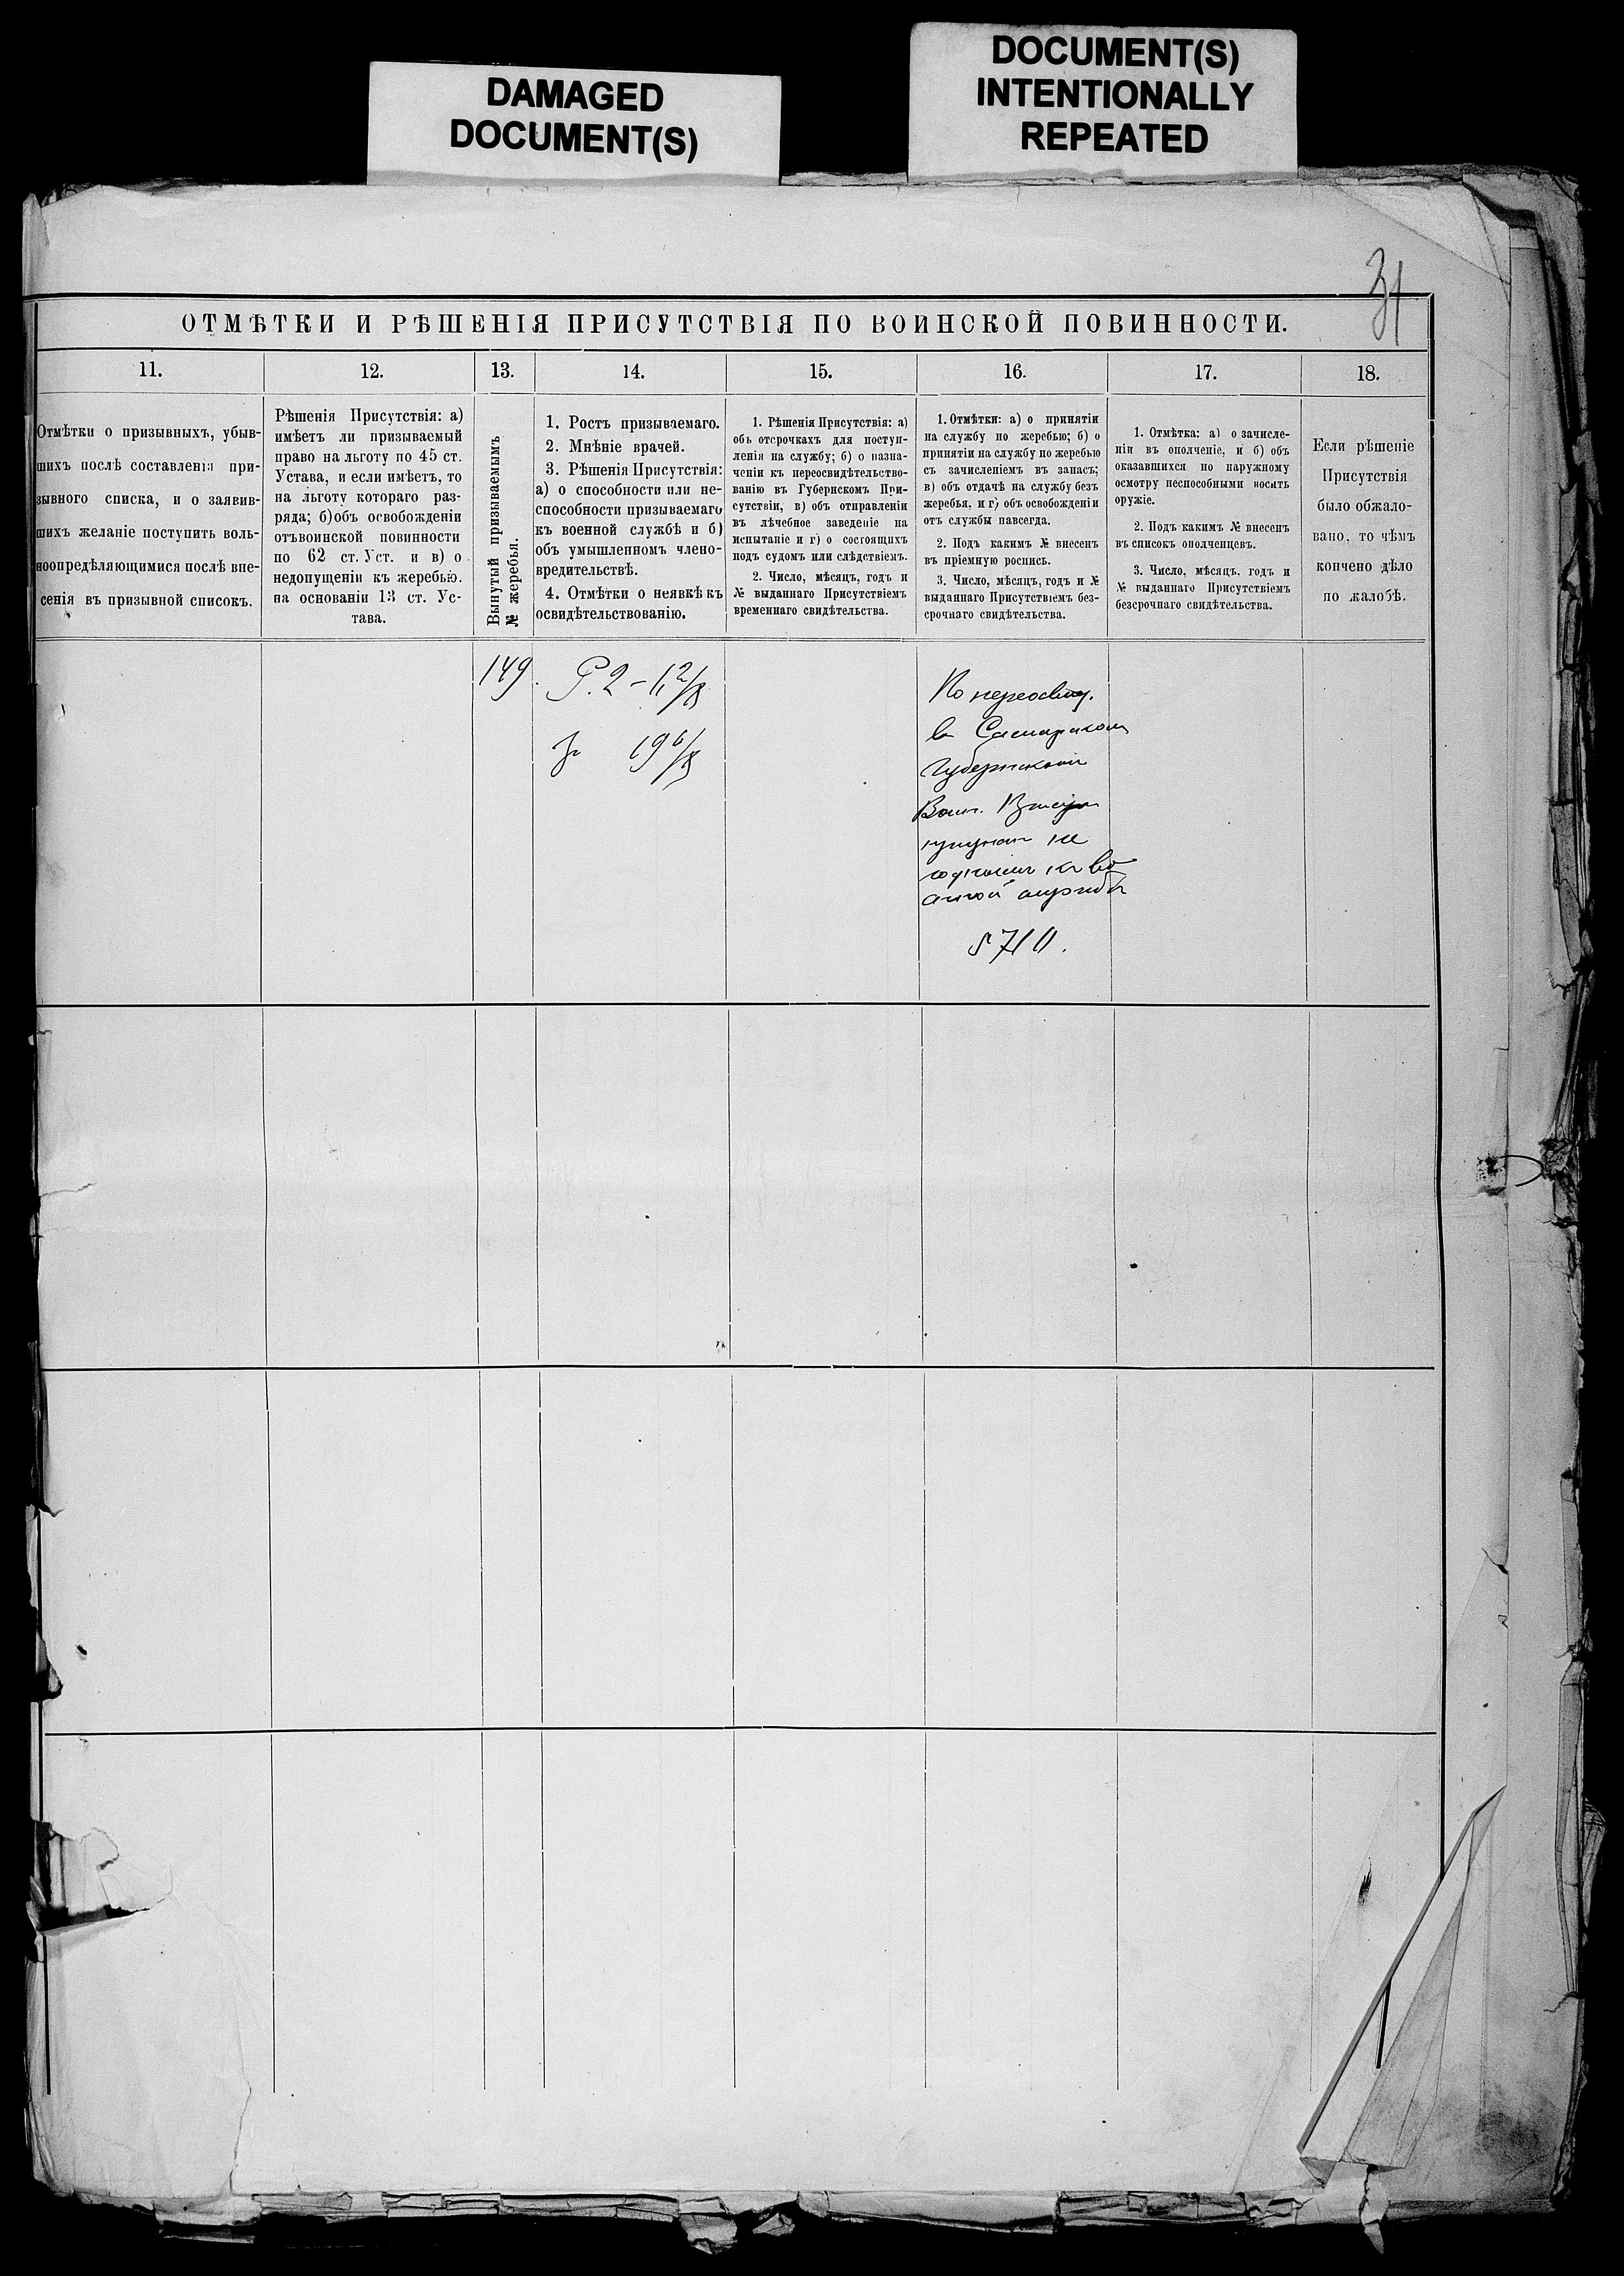 DAMAGED
DOCUMENT(S)
DOCUMENT(S)
INTENTIONALLY
REPEATED
31
ОТМѢТКИ И РѢШЕНІЯ ПРИСУТСТВІЯ ПО ВОИНСКОЙ ПОВИННОСТИ.
11.
12.
13.
14.
15.
16.
17.
18.
Отмѣтки о призывныхъ, убыв-
шихъ послѣ составленія при-
зывного списка, и о заявив-
шихъ желаніе поступить воль-
ноопредѣляющимися послѣ вне-
сенія въ призывной списокъ.
Рѣшенія Присутствія: а)
имѣетъ ли призываемый
право на льготу по 45 ст.
Устава, и если имѣетъ, то
на льготу котораго раз-
ряда; б) объ освобожденіи
отъ воинской повинности
по 62 ст. Уст. и в) о
недопущеніи къ жеребью.
на основаніи 13 ст. Ус-
тава.
Вынутый призываемымъ
№ жеребья.
1. Ростъ призываемаго.
2. Мнѣніе врачей.
3. Рѣшенія Присутствія:
а) о способности или не-
способности призываемаго
къ военной службѣ и б)
объ умышленномъ члено-
вредительствѣ.
4. Отмѣтки о неявкѣ къ
освидѣтельствованію.
1. Рѣшенія Присутствія: а)
объ отсрочкахъ для поступ-
ленія на службу; б) о назна-
ченіи къ переосвидѣтельство-
ванію въ Губернскомъ При-
сутствіи, в) объ отправленіи
въ лѣчебное заведеніе на
испытаніе и г) о состоящихъ
подъ судомъ или слѣдствіемъ.
2. Число, мѣсяцъ, годъ и
№ выданнаго Присутствіемъ
временнаго свидѣтельства.
1. Отмѣтки: а) о принятіи
на службу по жеребью; б) о
принятіи на службу по жеребью
съ зачисленіемъ въ запасъ;
в) объ отдачѣ на службу безъ
жеребья, и г) объ освобожденіи
отъ службы навсегда.
2. Подъ какимъ № внесенъ
въ пріемную роспись.
3. Число, мѣсяцъ, годъ и №
выданнаго Присутствіемъ без-
срочнаго свидѣтельства.
1. Отмѣтка: а) о зачисле-
ніи въ ополченіе, и б) объ
оказавшихся по наружному
осмотру неспособными носить
оружіе.
2. Подъ какимъ № внесенъ
въ списокъ ополченцевъ.
3. Число, мѣсяцъ, годъ и
№ выданнаго Присутствіемъ
безсрочнаго свидѣтельства.
Если рѣшеніе
Присутствія
было обжало-
вано, то чѣмъ
кончено дѣло
по жалобѣ.
149.
Р. 2 – 1 2/8
По переосвид.
въ Самарскомъ
Губернскомъ
Воин.
не
годнымъ къ во
енной службѣ
5710.